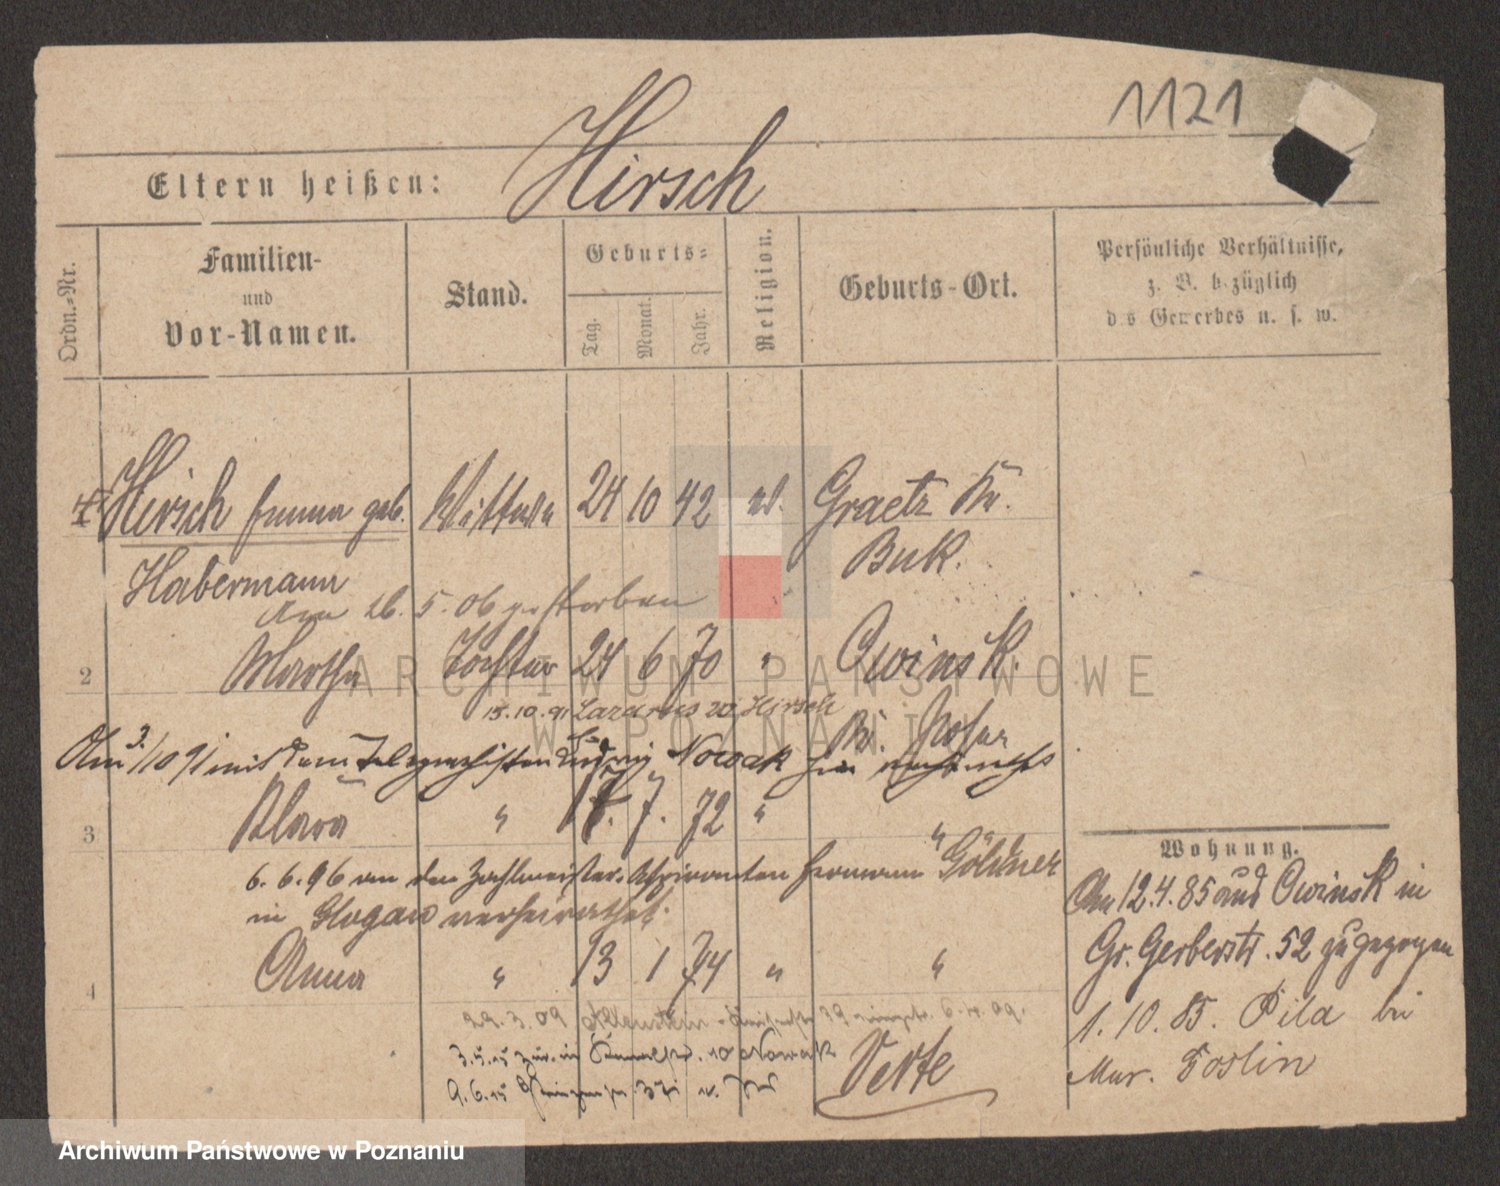 1121
Eltern heißen: Hirsch
Ordn.-Nr.
Familien- und Vor-Namen.
Stand.
Geburts-
Tag. Monat. Jahr.
Religion.
Geburts-Ort.
Persönliche Verhältnisse,
z. B. bezüglich
des Gewerbes u. s. w.
Hirsch Emma geb. Wittwe 24 10 42 Graetz Kr.
Habermann Buk.
Am 26. 5. 06 gestorben
2 Martha Tochter 24 6 70 " Owinsk.
15.10.91 Lazarus Hirsch
Am 3./10 91 mit dem Telegraphisten Nowak
3 Klara " 17. 7. 72 " "
6. 6. 96 an den Zahlmeister-Aspiranten Hermann Göldner
in Glogau verheirathet.
4 Anna " 13 1 74 " "
29.3.09 Allenstein 39 6.4.09.
3.5.15 10 Nowak
9.6.15
Verte
Wohnung.
Am 12.4.85 aus Owinsk in
Gr. Gerberstr. 52 zugezogen
1. 10. 85. Pila bei
Mur. Goslin
ARCHIWUM PAŃSTWOWE
W POZNANIU
Archiwum Państwowe w Poznaniu